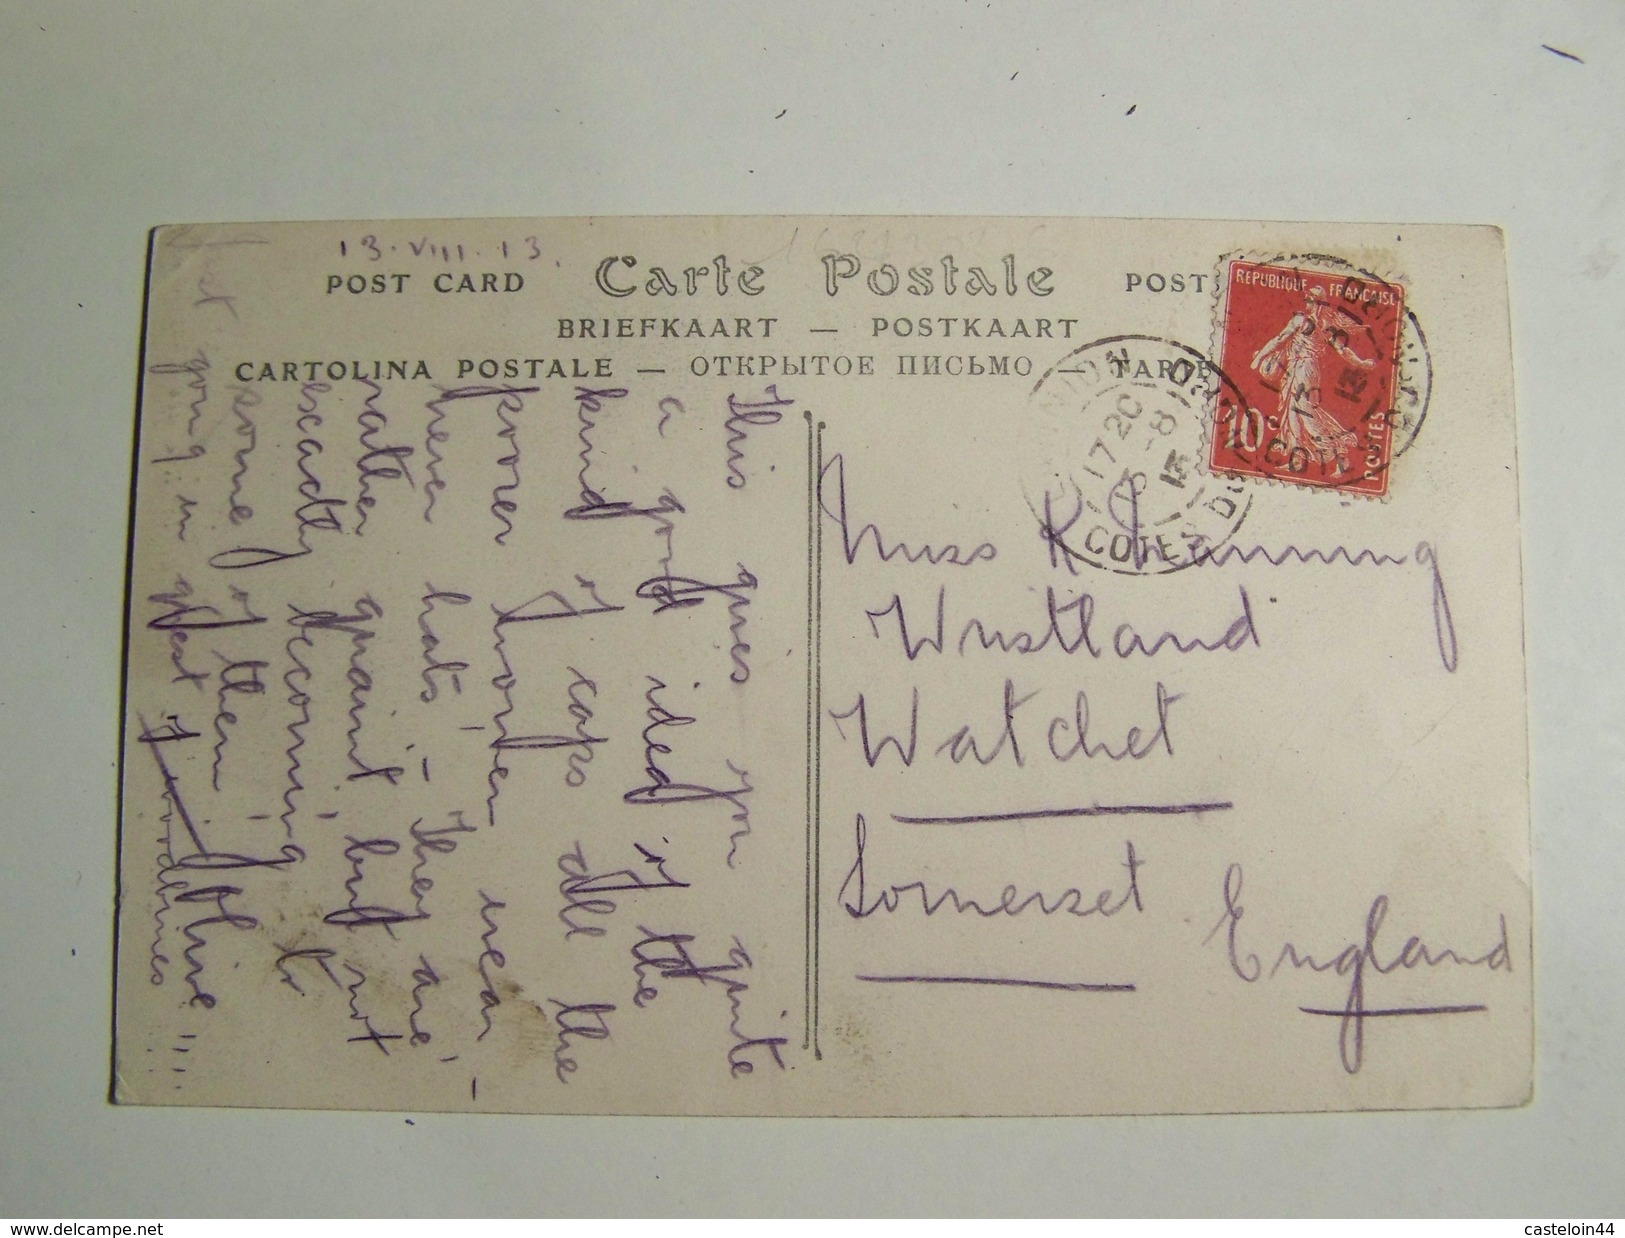 13.VIII.13.
POST CARD Carte Postale POST
BRIEFKAART — POSTKAART
CARTOLINA POSTALE — ОТКРЫТОЕ ПИСЬМО —
REPUBLIQUE FRANCAISE
10c
POSTES
17 20
13 -8
13
COTES DU NORD
This gives you quite
a good idea of the
kind of caps all the
poorer women wear -
never hats - They are
rather quaint, but not
exactly becoming to
some of them
going in quest of sardines!!!
Miss K
Watchet
Somerset
England
www.delcampe.net
casteloin44